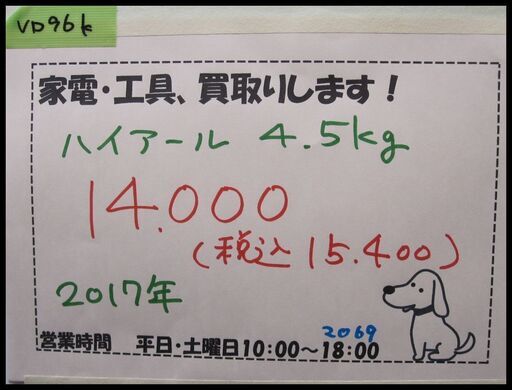 VD96k
家電・工具、買取りします!
ハイアール 4.5kg
14.000
(税込 15.400)
2017年
2069
営業時間 平日・土曜日10:00～18:00